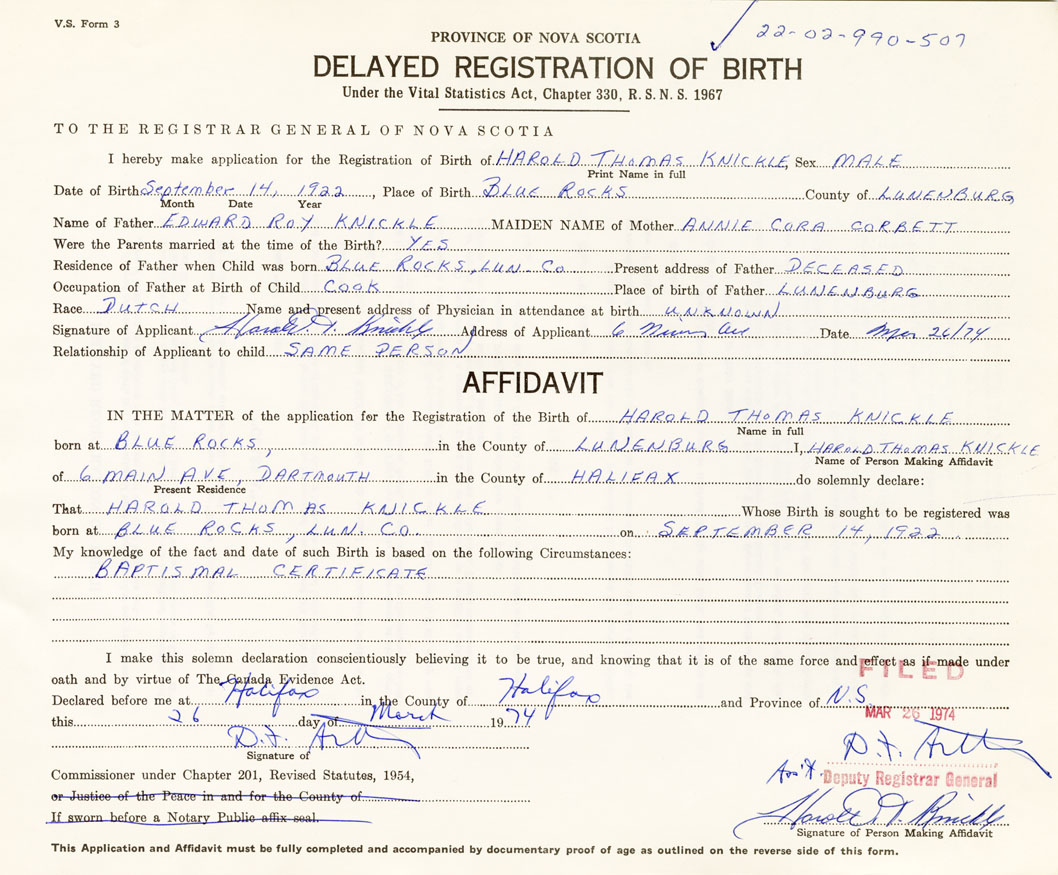 V.S. Form 3
22-02-990-507
PROVINCE OF NOVA SCOTIA
DELAYED REGISTRATION OF BIRTH
Under the Vital Statistics Act, Chapter 330, R. S. N. S. 1967
TO THE REGISTRAR GENERAL OF NOVA SCOTIA
I hereby make application for the Registration of Birth of HAROLD THOMAS KNICKLE, Sex MALE
Print Name in full
Date of Birth September 14, 1922, Place of Birth BLUE ROCKS County of LUNENBURG
Month Date Year
Name of Father EDWARD ROY KNICKLE MAIDEN NAME of Mother ANNIE CORA CORBETT
Were the Parents married at the time of the Birth? YES
Residence of Father when Child was born BLUE ROCKS, LUN. CO Present address of Father DECEASED
Occupation of Father at Birth of Child COOK Place of birth of Father LUNENBURG
Race DUTCH Name and present address of Physician in attendance at birth UNKNOWN
Signature of Applicant Harold T. Knickle Address of Applicant 6 Ave Date Mar 26/74
Relationship of Applicant to child SAME PERSON
AFFIDAVIT
IN THE MATTER of the application for the Registration of the Birth of HAROLD THOMAS KNICKLE
Name in full
born at BLUE ROCKS, in the County of LUNENBURG I, HAROLD THOMAS KNICKLE
Name of Person Making Affidavit
of 6 MAIN AVE, DARTMOUTH in the County of HALIFAX do solemnly declare:
Present Residence
That HAROLD THOMAS KNICKLE Whose Birth is sought to be registered was
born at BLUE ROCKS, LUN. CO. on SEPTEMBER 14, 1922
My knowledge of the fact and date of such Birth is based on the following Circumstances:
BAPTISMAL CERTIFICATE
I make this solemn declaration conscientiously believing it to be true, and knowing that it is of the same force and effect as if made under
oath and by virtue of The Canada Evidence Act.
FILED
Declared before me at Halifax in the County of Halifax and Province of N.S.
this 26 day of March 1974
MAR 26 1974
D.F.
Signature of
D.F.
Commissioner under Chapter 201, Revised Statutes, 1954,
Ass't Deputy Registrar General
or Justice of the Peace in and for the County of
If sworn before a Notary Public affix seal.
Harold T. Knickle
Signature of Person Making Affidavit
This Application and Affidavit must be fully completed and accompanied by documentary proof of age as outlined on the reverse side of this form.